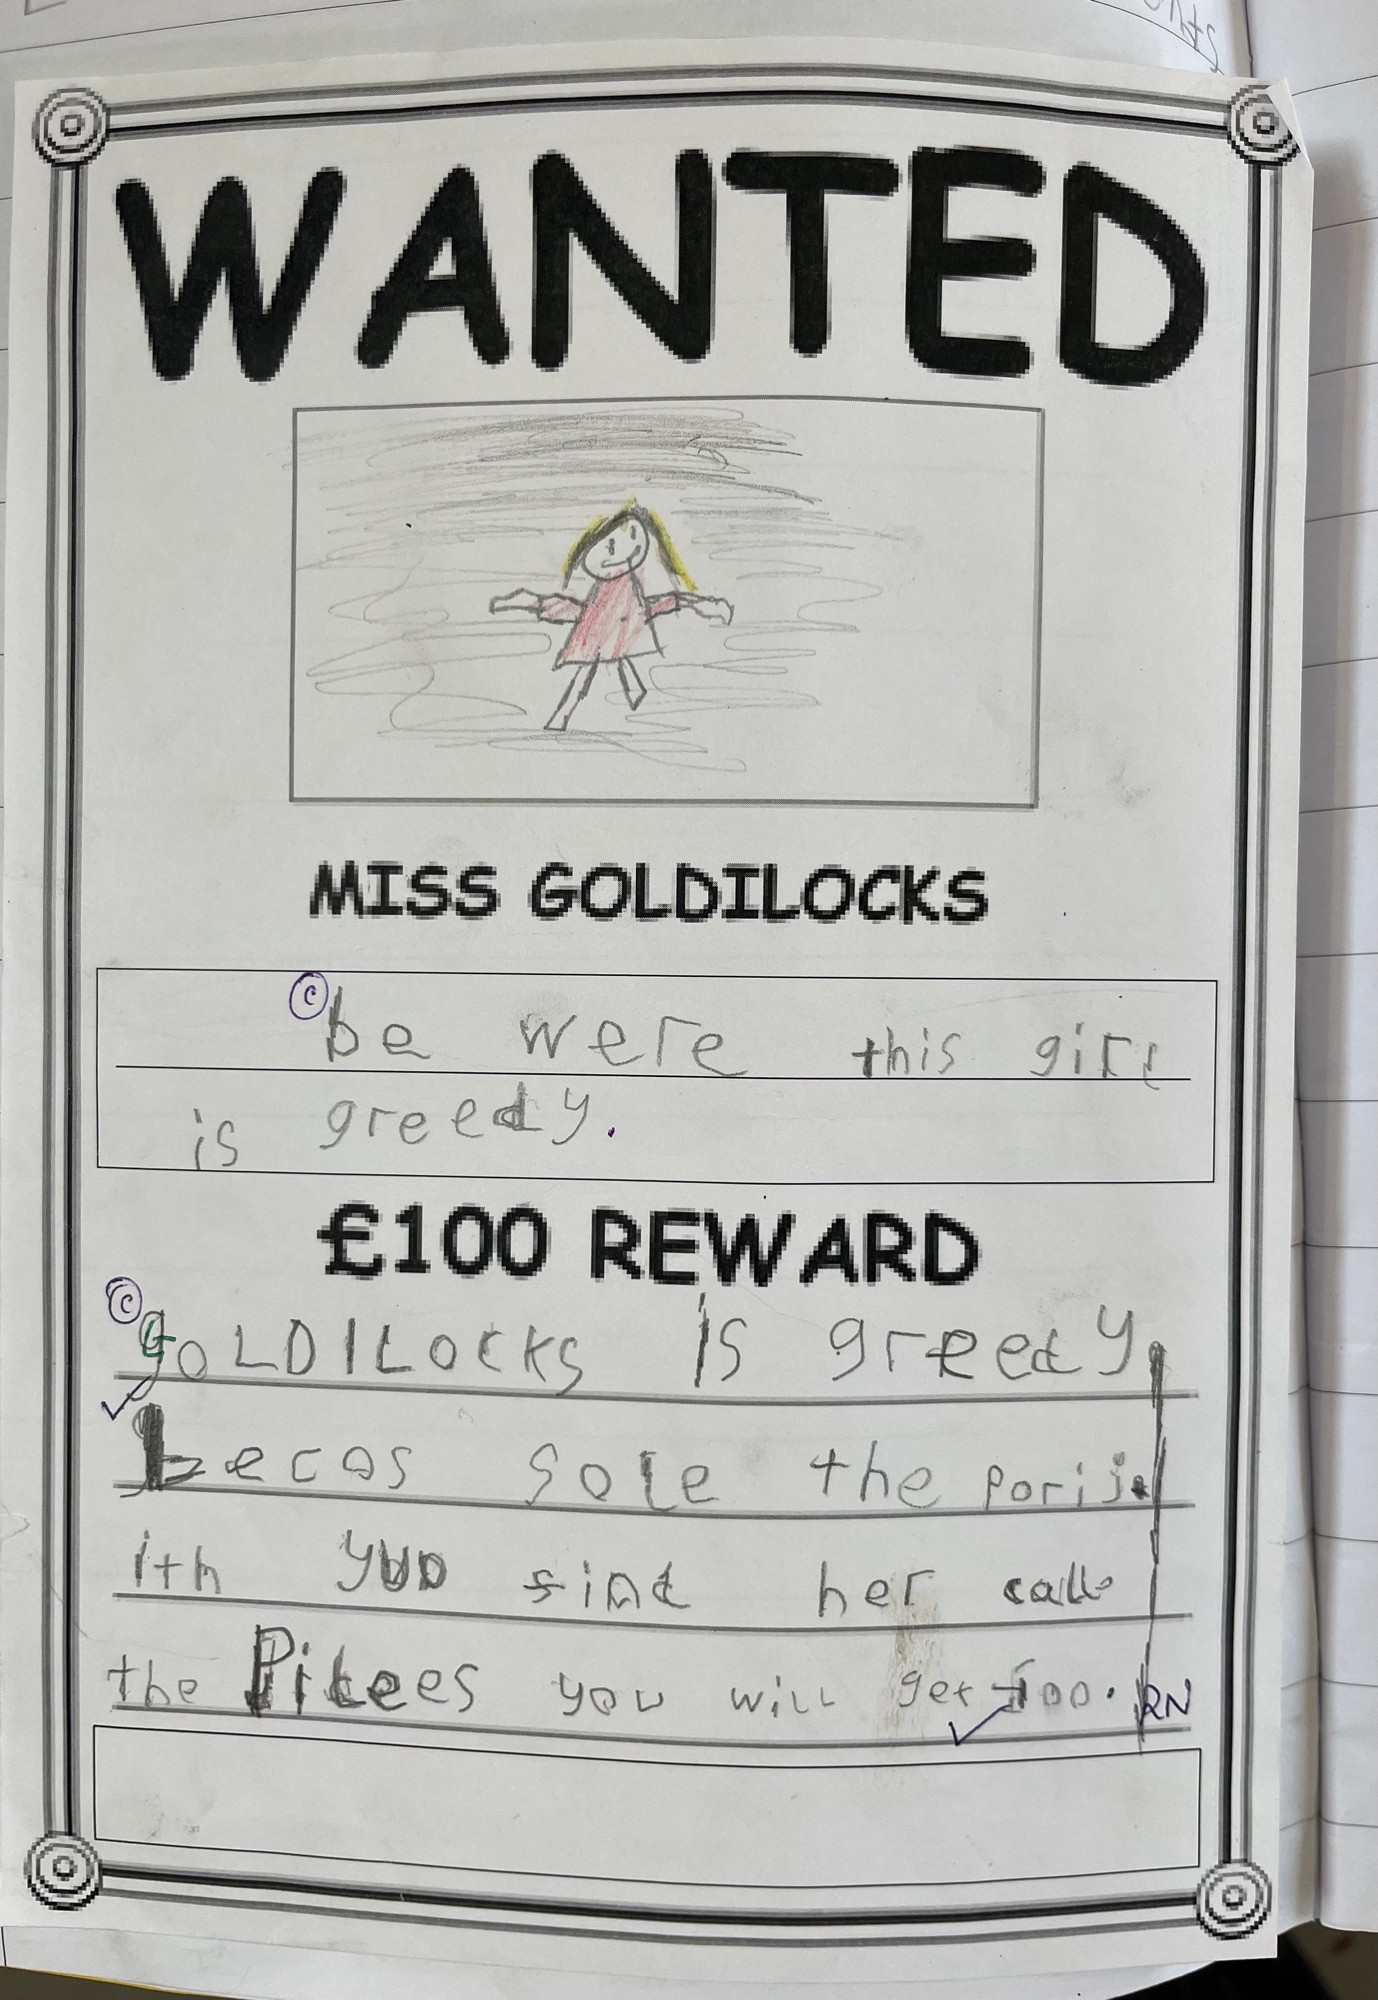 WANTED
MISS GOLDILOCKS
© be were this girl
is greedy.
£100 REWARD
© GOLDILOcKS is greedy.
becos sole the porij.
ith you find her call
the Pilees you will get 100. RN